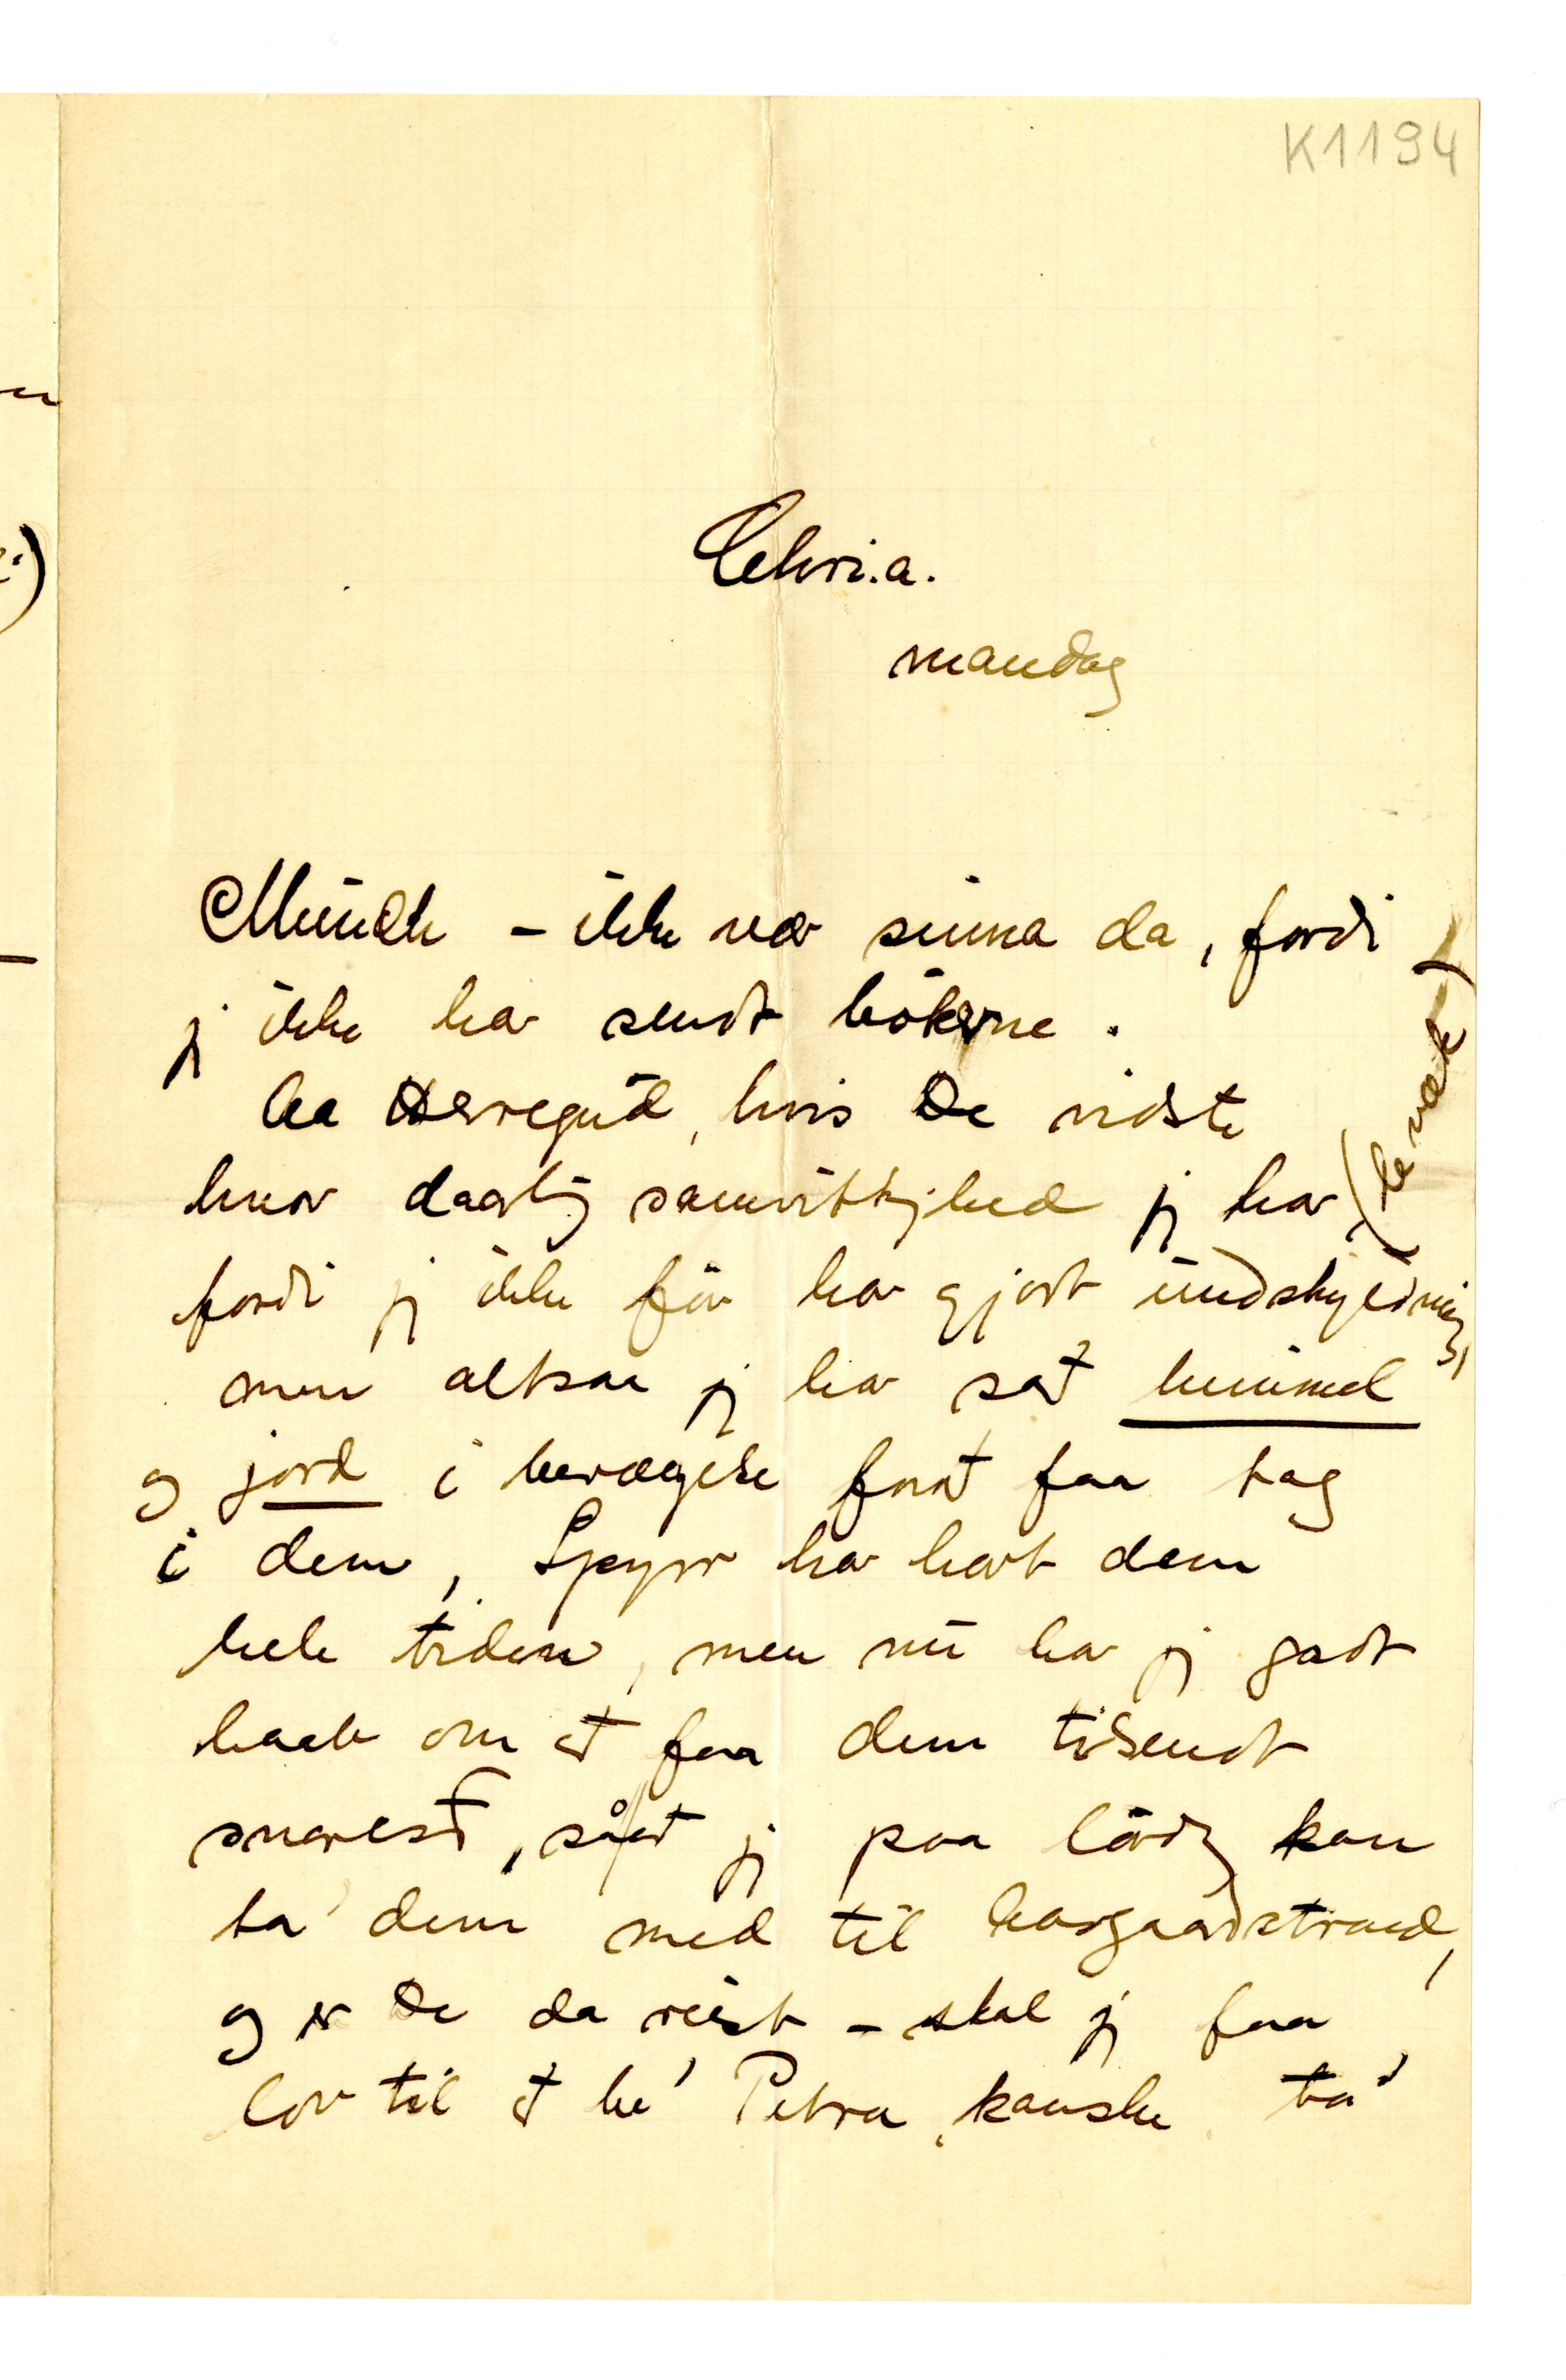 K1194
Chri.a.
mandag
Munch – ikke vær sinna da, fordi
jg ikke har sendt bökerne.
Aa Herregud, hvis De vidste
hvor daarlig samvittighed jg har
(levæk)
fordi jg ikke för har gjort undskyldning,
men altsaa jg har sat himmel
og jord i bevægelse forat faa tag
i dem, har havt dem
hele tiden, men nu har jg godt
haab om at faa dem tilsendt
snarest, så at jg paa lördg kan
ta' dem med til Aasgaardstrand,
og er De da reist – skal jg faa
lov til at be' Petra kanske ta'